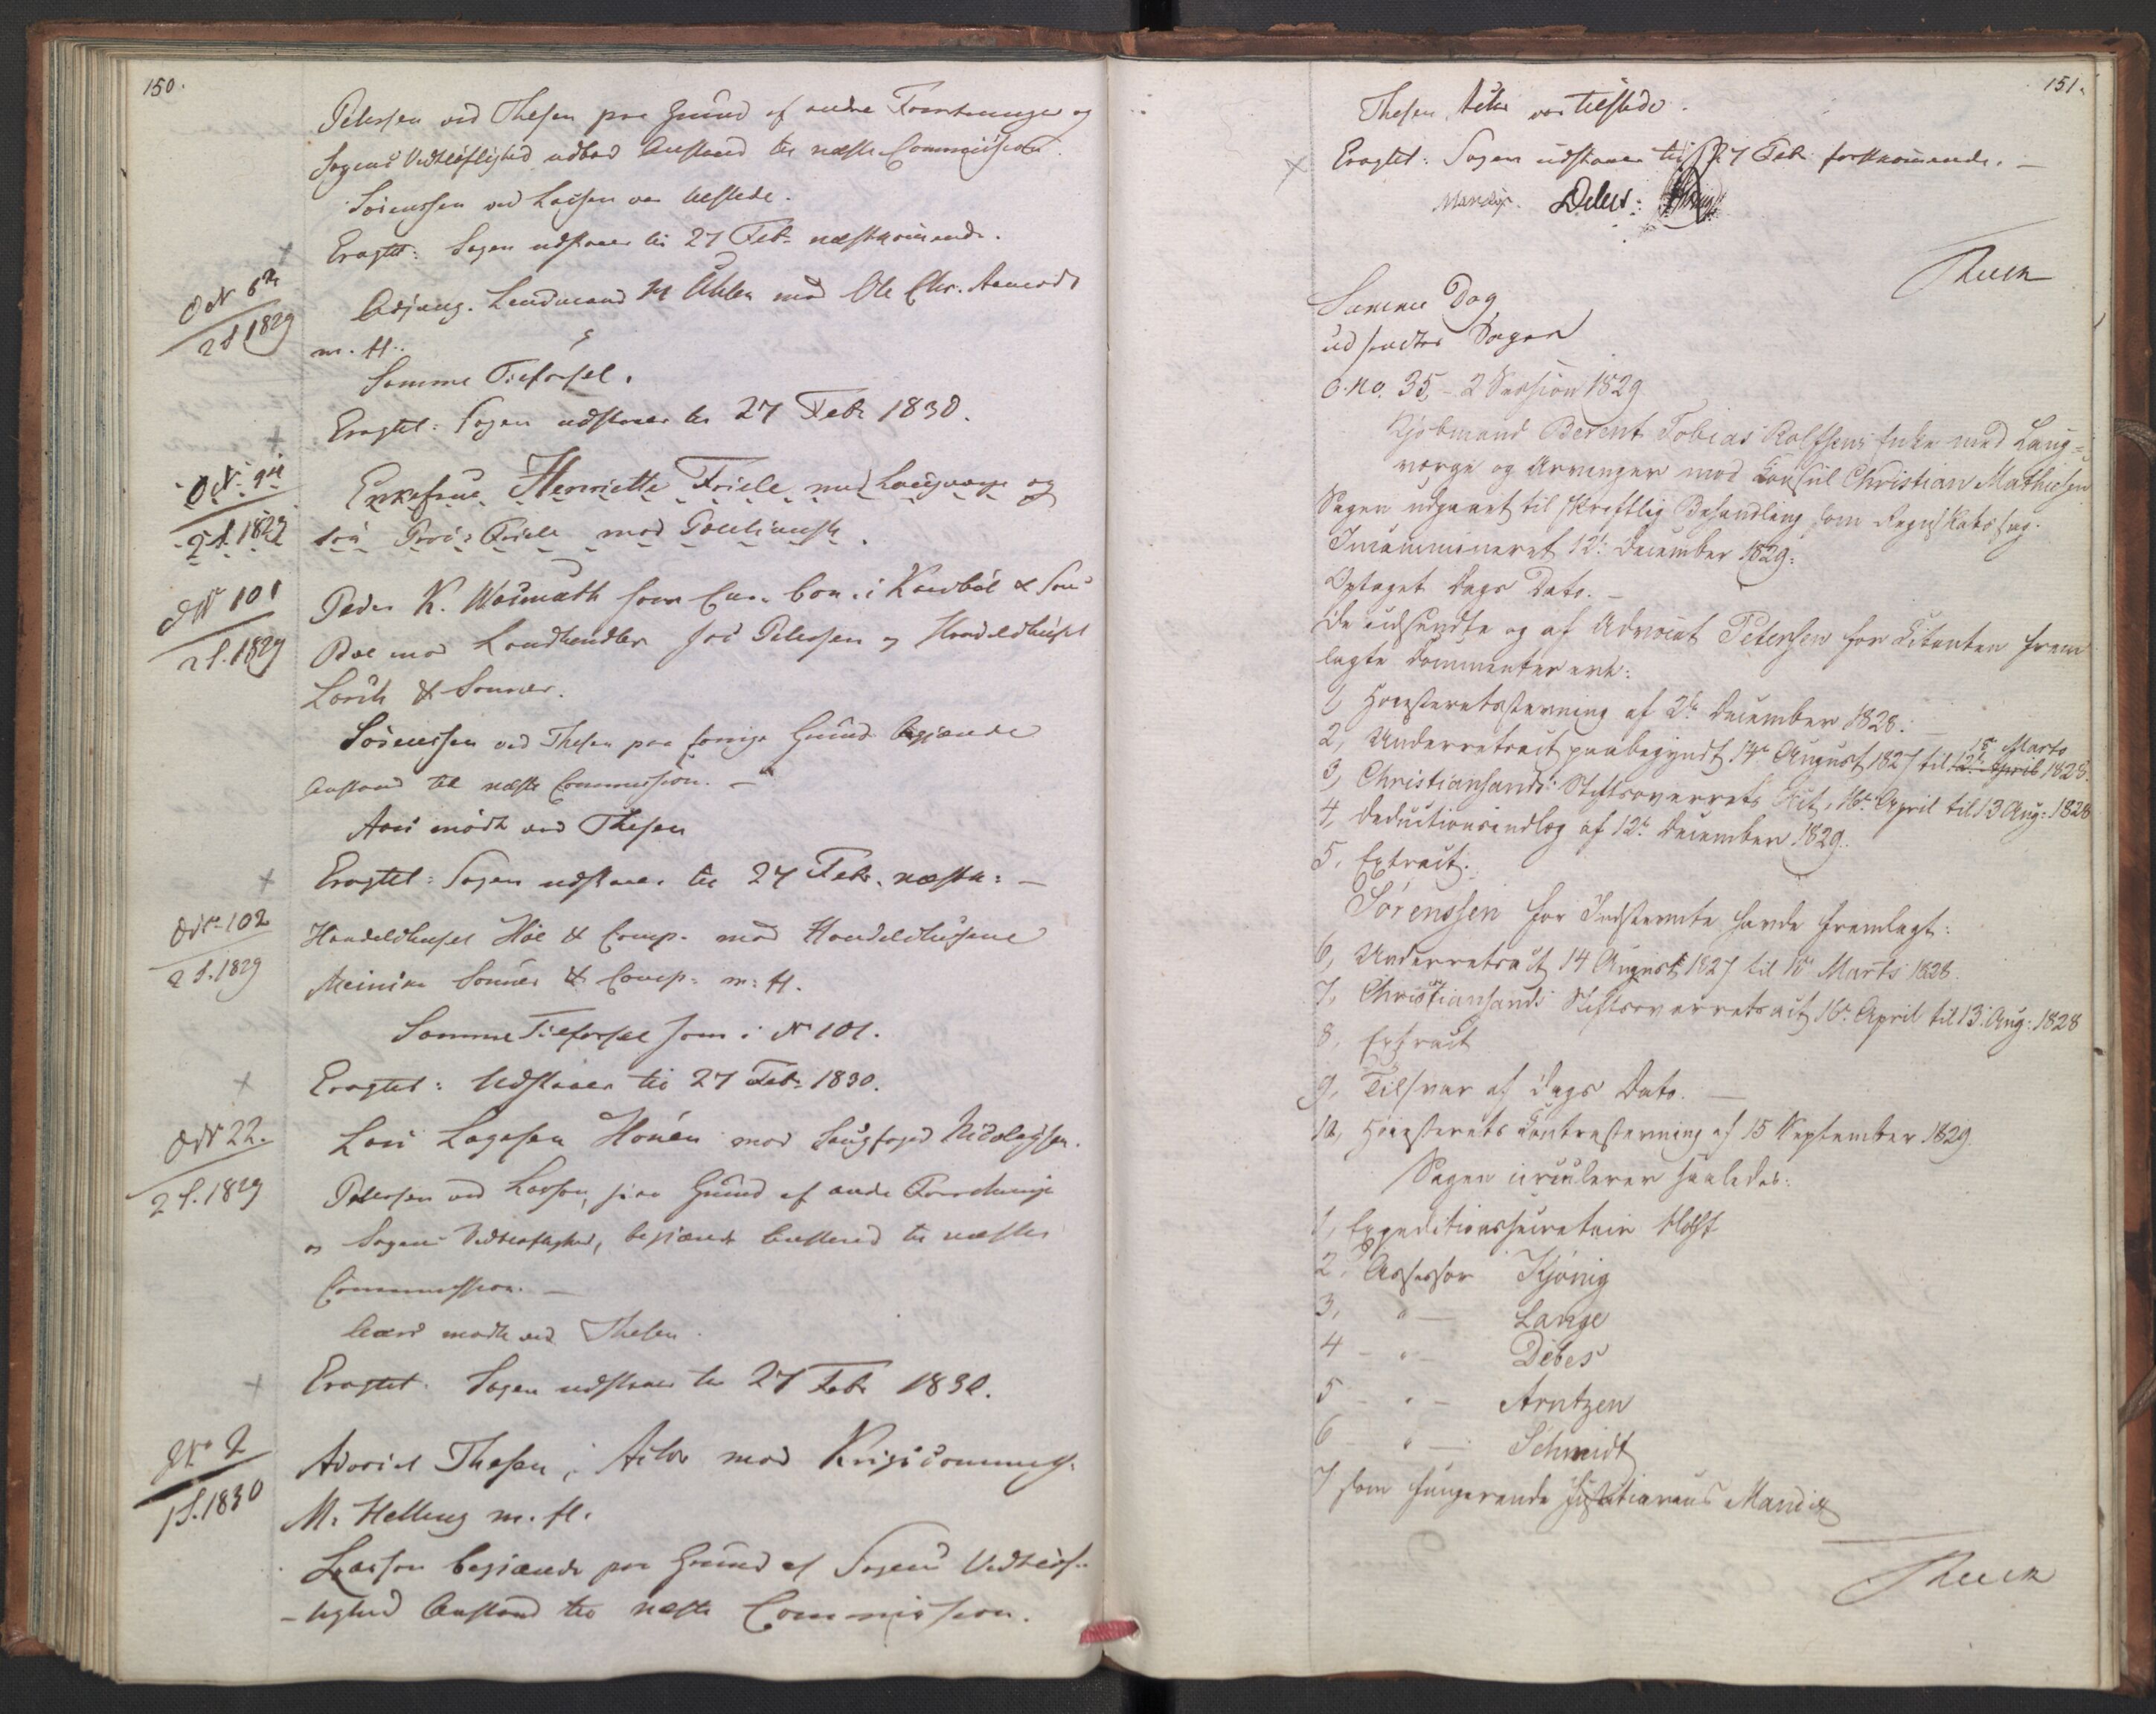 150.
Petersen ved Thesen paa Grund af andre Forretninger og
Sagens Vidtløftighed udbad Anstand til næste Commission.
Sörenssen ved Lassen var tilstede.
Eragtet: Sagen udstaaer til 27 Feb. næstkommende.
2 S 1829
Lendmand M Uhlen mod Ole Chr.
m. fl.
Samme Tilførsel.
Eragtet: Sagen udstaaer til 27 Feb. 1830.
2 S. 1829
Enkefrue Henriette Friele med Laugværge og
Friele mod
No 101
2 S. 1829
Peder K. Wasmuth som Cur. bon. i & Søns
Boe mod Landhandler Petersen og Handelshuset
Lorck & Sønner.
Sörenssen ved Thesen paa forrige Grund begjærede
Anstand til næste Commission. —
mødte ved Thesen
Eragtet: Sagen udstaaer til 27 Feb. næstk: —
No 102
2 S. 1829
Handelshuset Höe & Comp. mod Handelshusene
Meinike Sönner & Comp. m: fl.
Samme Tilførsel som i No 101.
Eragtet: Udstaaer til 27 Feb. 1830.
No 22.
2 S. 1829
Lars Lagesen Honén mod Nicolaysen.
Petersen ved Lasson, paa Grund af andre Forretninger
og Sagens Vidtløftighed, begjærede Anstand til næste
Commission. —
mødte ved Thesen.
Eragtet. Sagen udstaaer til 27 Feb. 1830.
No 2
1 S. 1830
Advocat Thesen, Actor mod Krigscommiss.
M. Helling m. fl.
Lasson begjærede paa Grund af Sagens Vidtløf-
-tighed Anstand til næste Commission.
151.
Thesen Actor var tilstede.
Eragtet: Sagen udstaaer til 27 Feb. førstkommende. —
Mandix. Debes:
Samme Dag
udsendtes Sagen
O. No. 35, - 2 Session 1829
Kjöbmand Berent Tobias Rolfsens Enke med Laug-
værge og Arvinger mod Consul Christian Mathiesen
Sagen udgaaet til skriftlig Behandling som Regnskabssag.
Incamineret 12te December 1829.
Optaget Dags Dato. —
De udsendte og af Advocat Petersen for Citanten frem
lagte Documenter ere:
1, Höiesteretsstevning af 2de December 1828.
2, Underretsact paabegyndt 14de August 1827 til 12te April 18de Marts 1828.
3, Christiansands Stiftsoverrets Act, 16de April til 13 Aug: 1828
4, Deductionsindlæg af 12te December 1829.
5, Extract.
Sörenssen for Indstevnte havde fremlagt:
6, Underretsact 14 August 1827 til 18de Marts 1828.
7, Christiansands Stiftsoverretsact 16de April til 13 Aug: 1828
8, Extract
9, Tilsvar af Dags Dato. —
10, Höiesterets Contrastevning af 15 September 1829.
Sagen circulerer saaledes:
1, Expeditionssecretair Holst
2, Assessor Kjönig
3, " — Lange
4 - " - Debes
5 - " - Arntzen
6 " — Schmidt
7 som fungerende Justitiarius Mandix